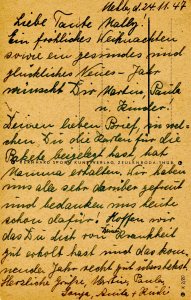 Melle, d. 24.11.47
Liebe Tante Wally!
Ein fröhliches Weihnachten
sowie ein gesundes und
glückliches Neues-Jahr
wünscht Dir Martin, Paula
u. Kinder.
Deinen lieben Brief, in wel-
chen Du die Karten für die
Pakete beigelegt hast, hat
Mamma erhalten. Wir haben
uns alle sehr darüber gefreut
und bedanken uns heute
schon dafür! Hoffen wir
das Du Dich von Krankheit
gut erholt hast und das kom.
neue Jahr recht gut
Herzliche Grüße, Martin, Paula,